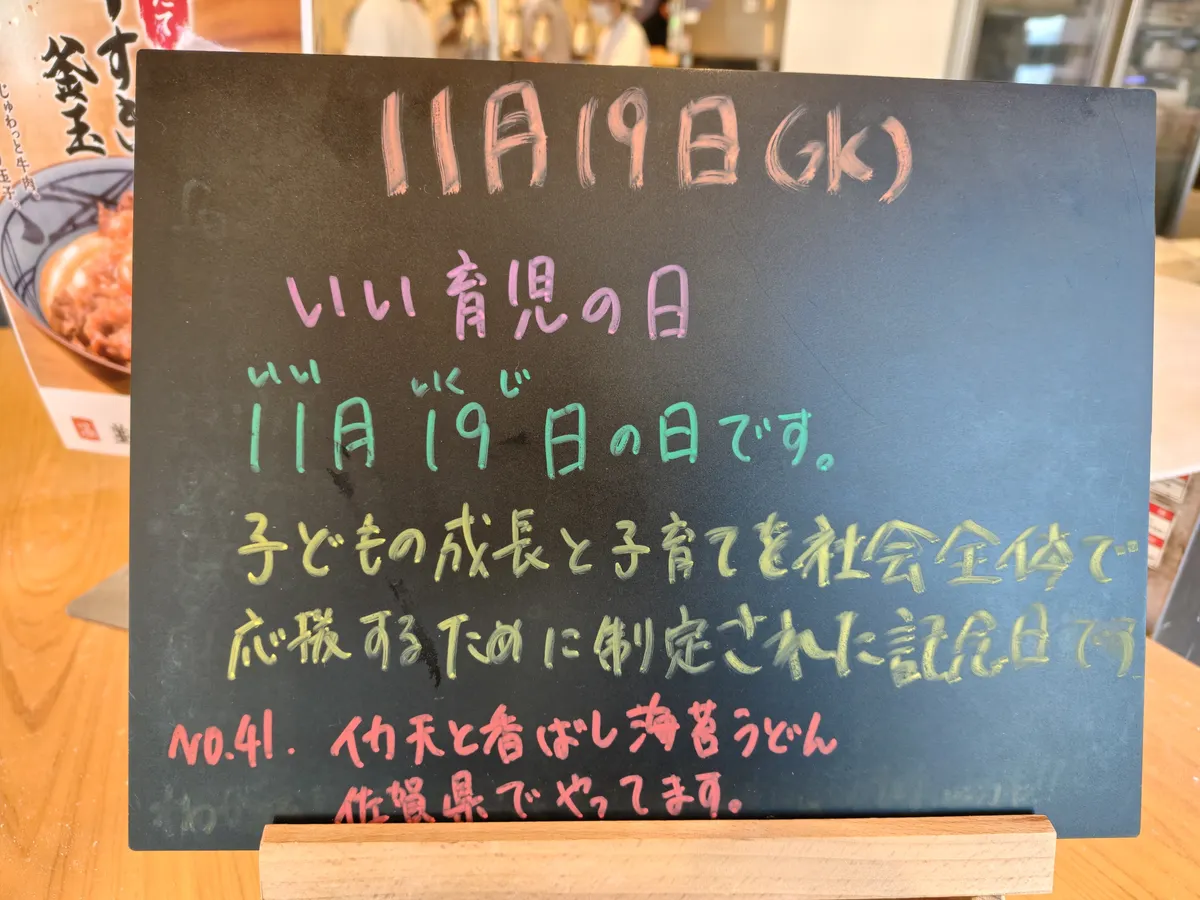 11月19日(水)
いい育児の日
いい いく じ
11月 19 日の日です。
子どもの成長と子育てを社会全体で
応援するために制定された記念日です
NO.41. イカ天と香ばし海苔うどん
佐賀県でやってます。
釜玉
じゅわっと牛肉。